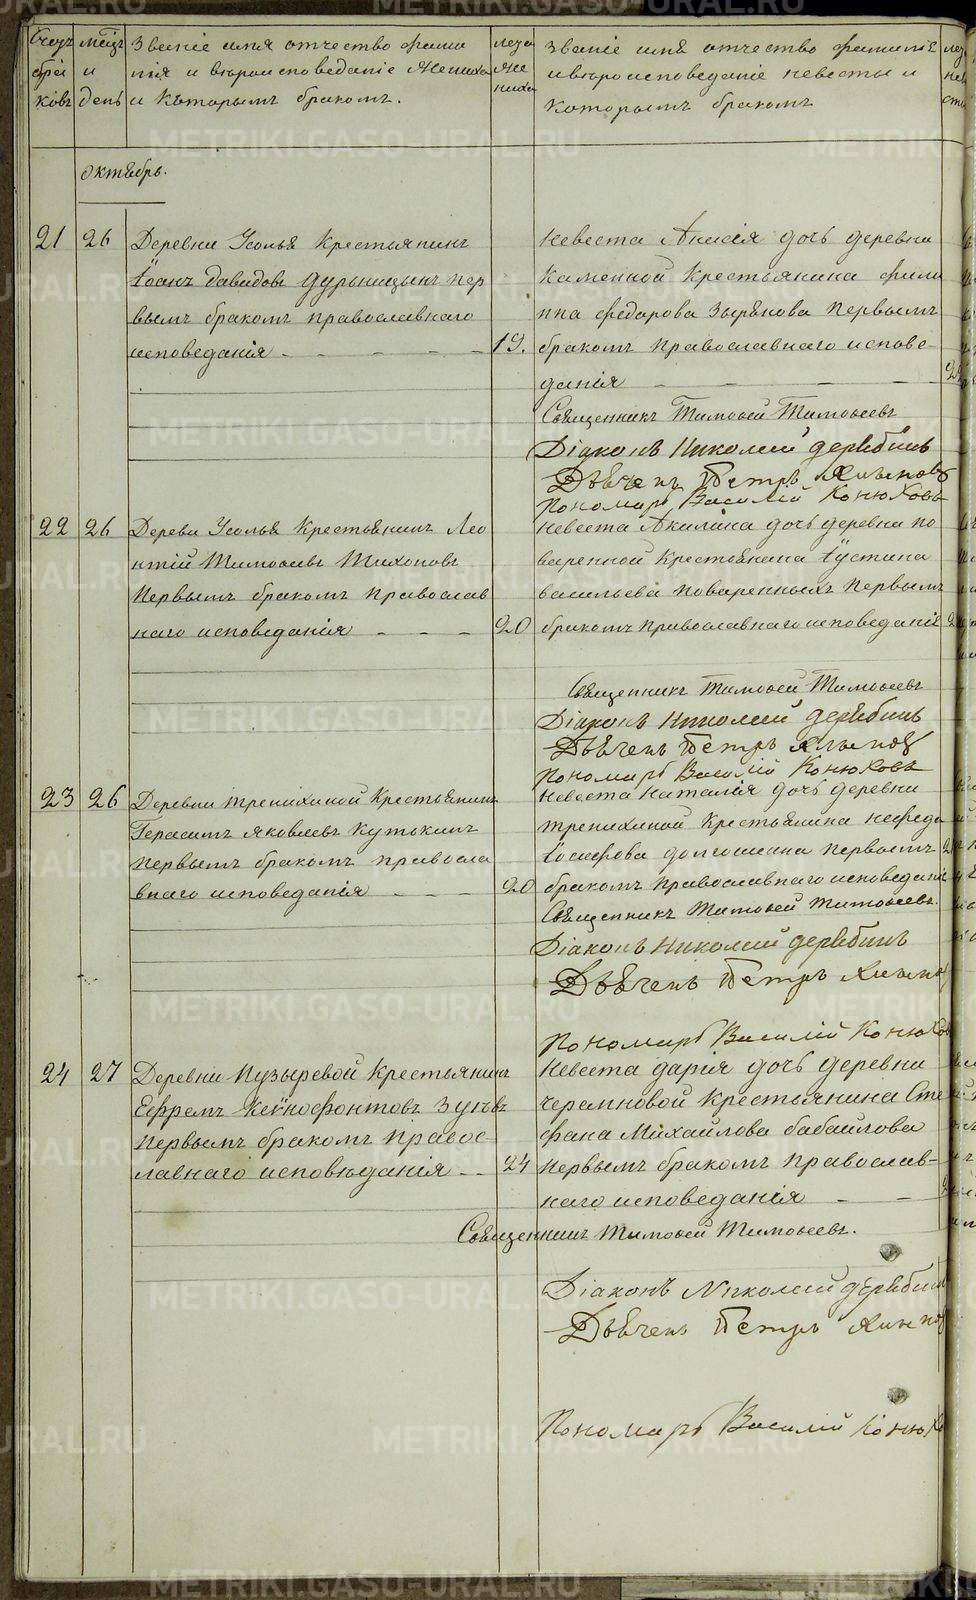 Счетъ браковъ
мѣсяцъ и день
Званіе имя отчество фами
лія и вѣроисповеданіе Жениха
и которымъ бракомъ.
лета Же ниха
Званіе имя отчество фамиліе
и вероисповеданіе невесты и
которымъ бракомъ
Октябрь.
21 26 Деревни Усолья Крестьянинъ
Іоанъ Давидовъ Дурницынъ пер
вымъ бракомъ православнаго
исповеданія 19.
Невеста Анисія дочь деревни
Каменной Крестьянина фили
ппа федарова Зырянова Первымъ
бракомъ Православнаго испове-
данія
Священникъ Тимофей Тимофеевъ
Діаконъ Николай Дерябинъ
Дьячекъ Петръ
Пономарь Василій Конюховъ
22 26 Деревни Усолья Крестьянинъ Лео
нтій Тимофеевъ Тихоновъ
Первымъ бракомъ Православ
наго исповеданія 20
Невеста Акилина дочь деревни по
варенной Крестьянина Іустина
васильева Поваренныхъ Первымъ
бракомъ Православнаго исповеданія
Священникъ Тимофей Тимофеевъ
Діаконъ Николай Дерябинъ
Дьячекъ Петръ
Пономарь Василій Конюховъ
23 26 Деревни трепихиной Крестьянинъ
Герасимъ Яковлевъ Кутькинъ
Первымъ бракомъ правосла
внаго исповеданія 20
Невеста Наталія дочь деревни
трепихиной Крестьянина нефеда
Іосифова долгошеина Первымъ
бракомъ Православнаго исповеданія
Священникъ Тимофей Тимофеевъ.
Діаконъ Николай Дерябинъ
Дьячекъ Петръ
Пономарь Василій Конюхов
24 27 Деревни Пузыревой Крестьянинъ
Ефремъ Ксенофонтовъ Зуевъ
Первымъ бракомъ Правос-
лавнаго исповеданія 24
Невеста дарія дочь деревни
черемновой Крестьянина Сте
фана Михайлова бабайлова
Первымъ бракомъ Православ-
наго исповеданія
Священникъ Тимофей Тимофеевъ.
Діаконъ Николай Дерябин
Дьячекъ Петръ
Пономарь Василій Конюхо
METRIKI.GASO-URAL.RU